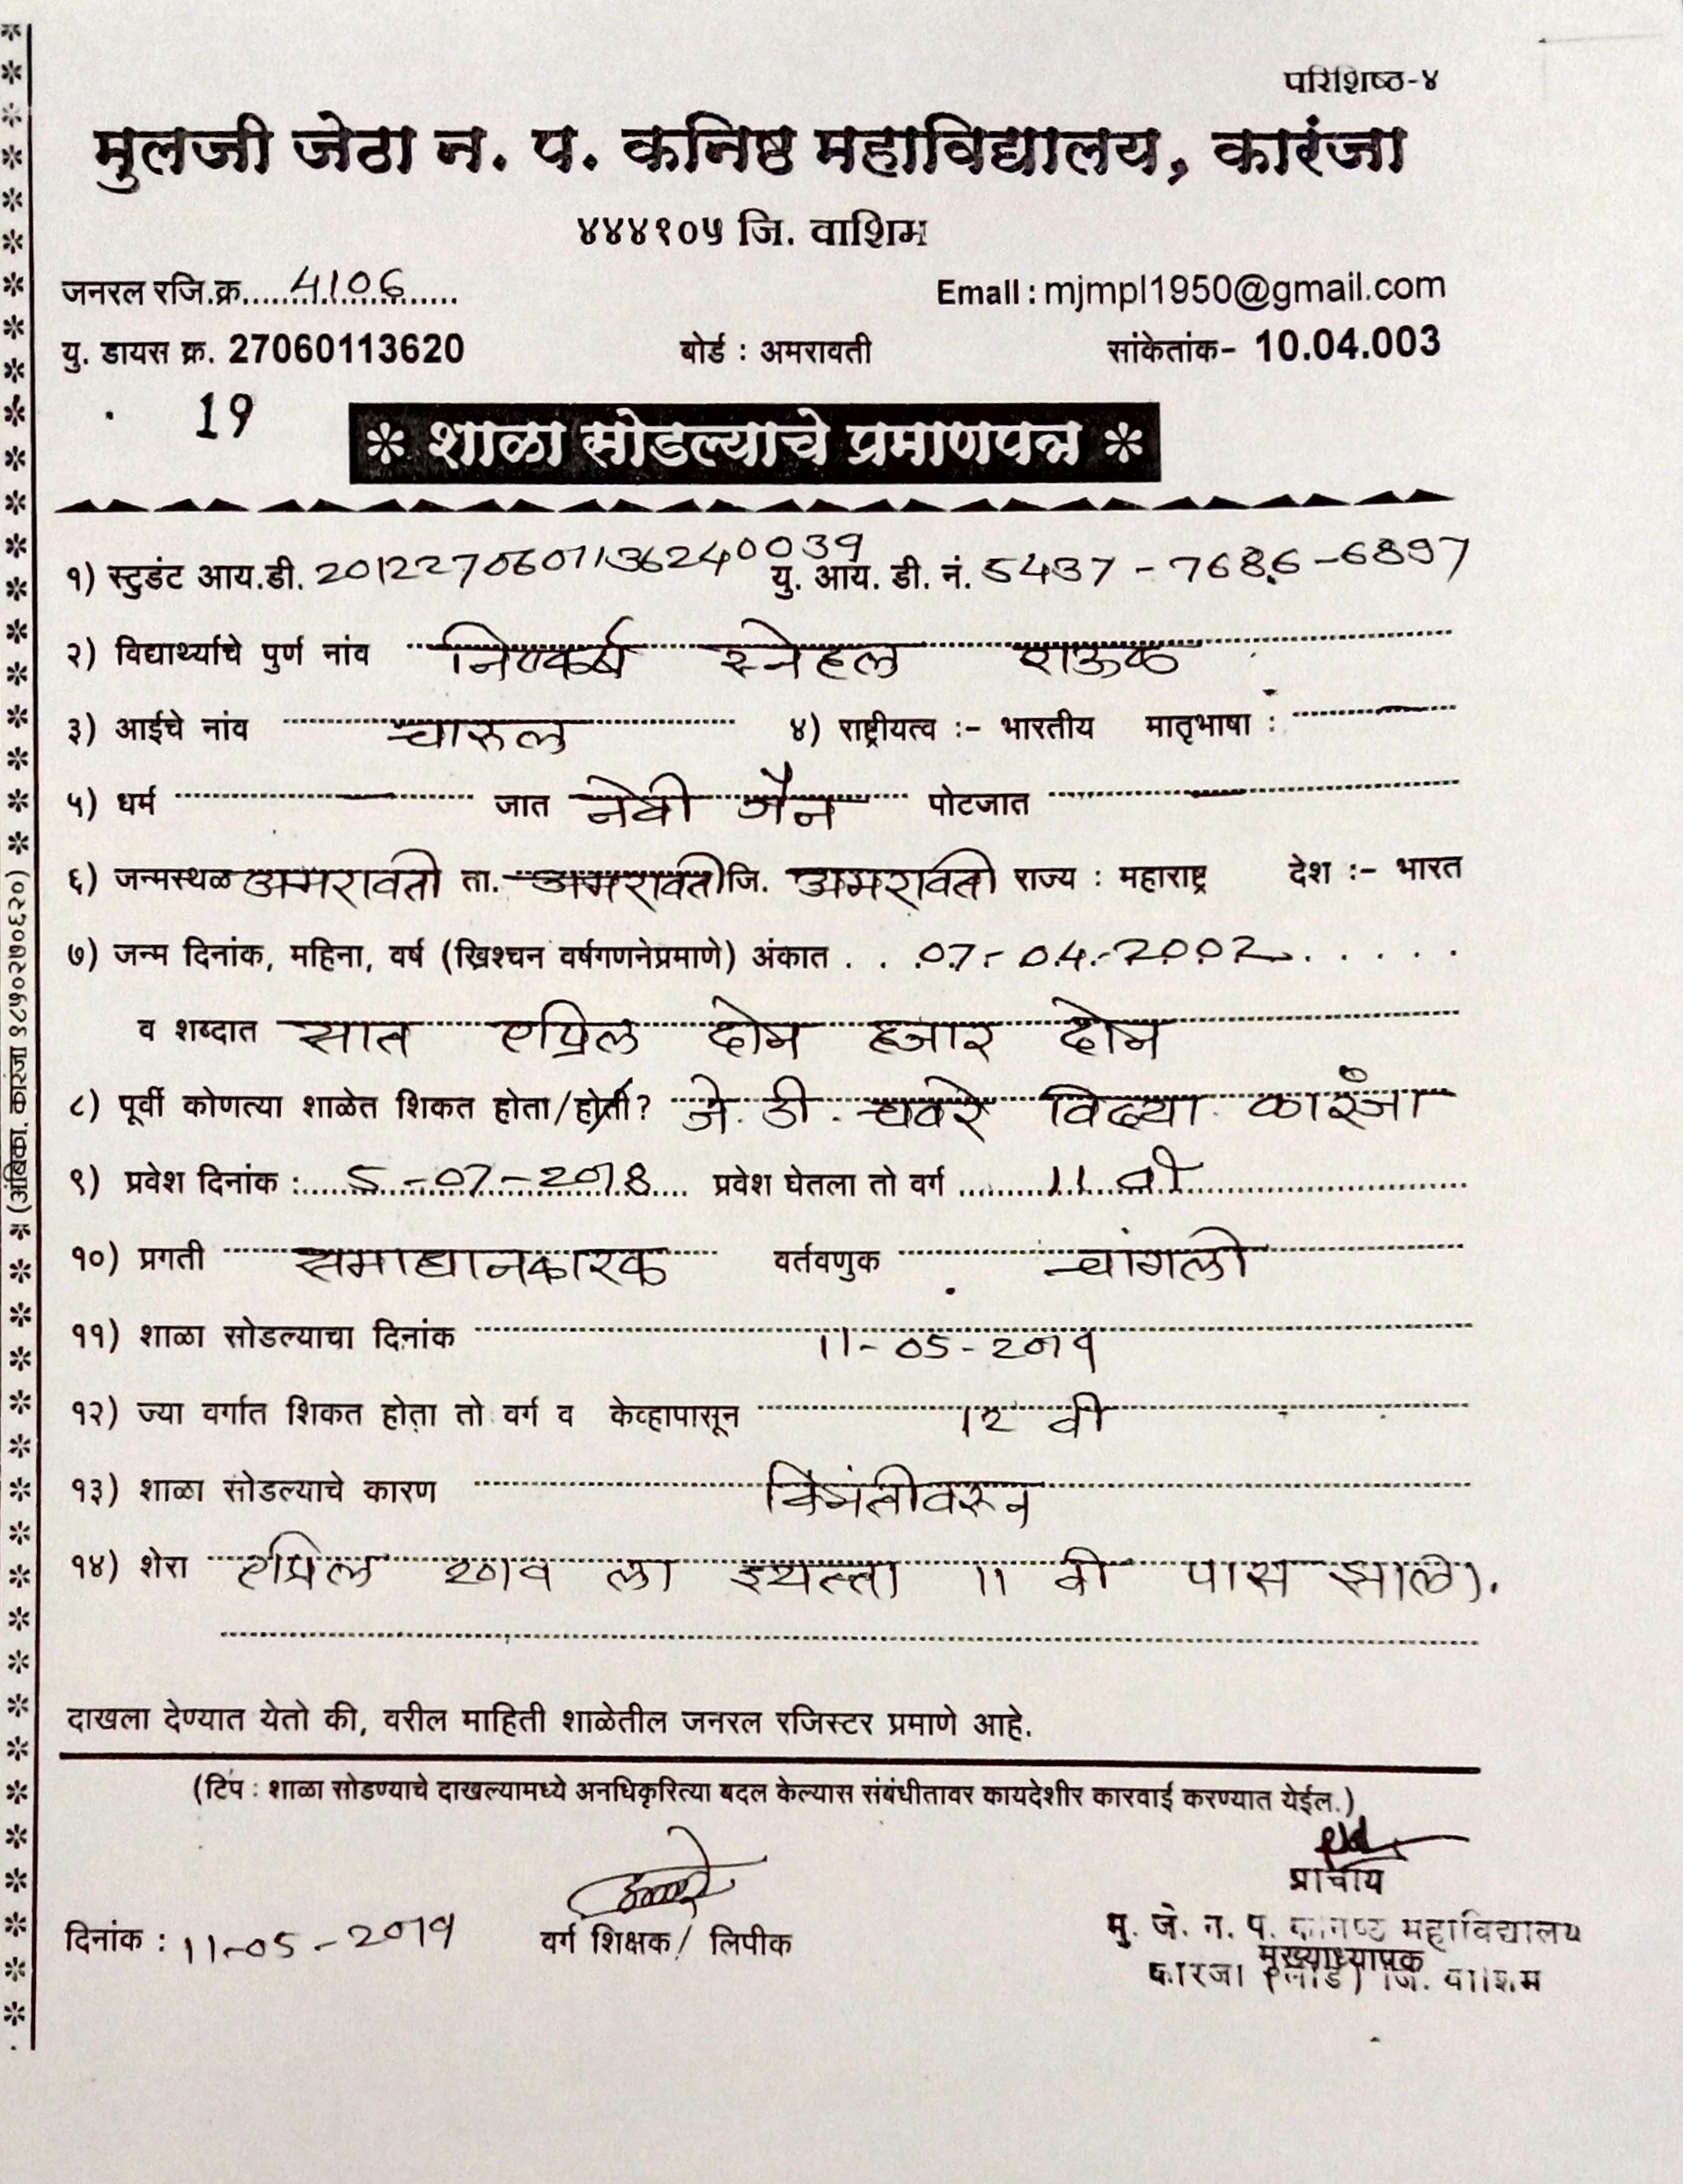 परिशिष्ठ-४
मुलजी जेठा न. प. कनिष्ठ महाविद्यालय, कारंजा
४४४१०५ जि. वाशिम
जनरल रजि.क्र. 4106 Email : mjmpl1950@gmail.com
यु. डायस क्र. 27060113620 बोर्ड : अमरावती सांकेतांक- 10.04.003
19
* शाळा सोडल्याचे प्रमाणपत्र *
१) स्टुडंट आय.डी. 2012270601136240039 यु. आय. डी. नं. 5437 - 7686 - 6897
२) विद्यार्थ्याचे पुर्ण नांव निष्कर्ष स्नेहल राऊळ
३) आईचे नांव चारुल ४) राष्ट्रीयत्व :- भारतीय मातृभाषा : —
५) धर्म — जात नेवी जैन पोटजात —
६) जन्मस्थळ अमरावती ता. अमरावती जि. अमरावती राज्य : महाराष्ट्र देश :- भारत
७) जन्म दिनांक, महिना, वर्ष (ख्रिश्चन वर्षगणनेप्रमाणे) अंकात 07-04-2002
व शब्दात सात एप्रिल दोन हजार दोन
८) पूर्वी कोणत्या शाळेत शिकत होता/होती? जे. डी. चवरे विद्या कारंजा
९) प्रवेश दिनांक : 5-07-2018 प्रवेश घेतला तो वर्ग 11 वी
१०) प्रगती समाधानकारक वर्तवणुक चांगली
११) शाळा सोडल्याचा दिनांक 11-05-2019
१२) ज्या वर्गात शिकत होता तो वर्ग व केव्हापासून 12 वी
१३) शाळा सोडल्याचे कारण विनंतीवरून
१४) शेरा एप्रिल ला इयत्ता 11 वी पास झाले.
दाखला देण्यात येतो की, वरील माहिती शाळेतील जनरल रजिस्टर प्रमाणे आहे.
(टिप : शाळा सोडण्याचे दाखल्यामध्ये अनधिकृरित्या बदल केल्यास संबंधीतावर कायदेशीर कारवाई करण्यात येईल.)
प्राचार्य
दिनांक : 11-05-2019 वर्ग शिक्षक / लिपीक मु. जे. न. प. कनिष्ठ महाविद्यालय
मुख्याध्यापक
कारंजा (लाड) जि. वाशिम
(अंबिका. कारंजा ९८५०२७०६२०)